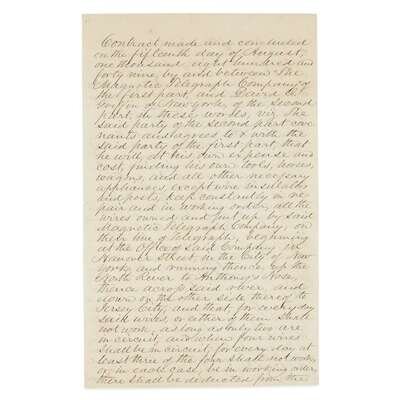 Contract made and concluded
on the fifteenth day of August,
one thousand, eight hundred and
forty nine, by and between The
Magnetic Telegraph Company of
the first part, and David
of New York of the second
part, in these words, viz the
said party of the second part cove-
nants and agrees, to & with the
said party of the first part that
he will, at his own expense and
cost, finding his own tools, horses,
wagons, and all other necessary
appliances, except wire insulators
and posts, keep constantly in re-
pair and in working order, all the
wires owned and put up by said
Magnetic Telegraph Company, on
their line of Telegraph, beginning
at the Office of said Company in
Hanover Street, in the City of New
York, and running thence up the
North River to Anthony's Nose,
thence across said river, and
down on the other side thereof to
Jersey City, and that, for every day
said wires, or either of them shall
not work, as long as only two are
in circuit, and when four wires
shall be in circuit, for every day at
least three of the four shall not work,
or in each case, be in working order,
there shall be deducted from the